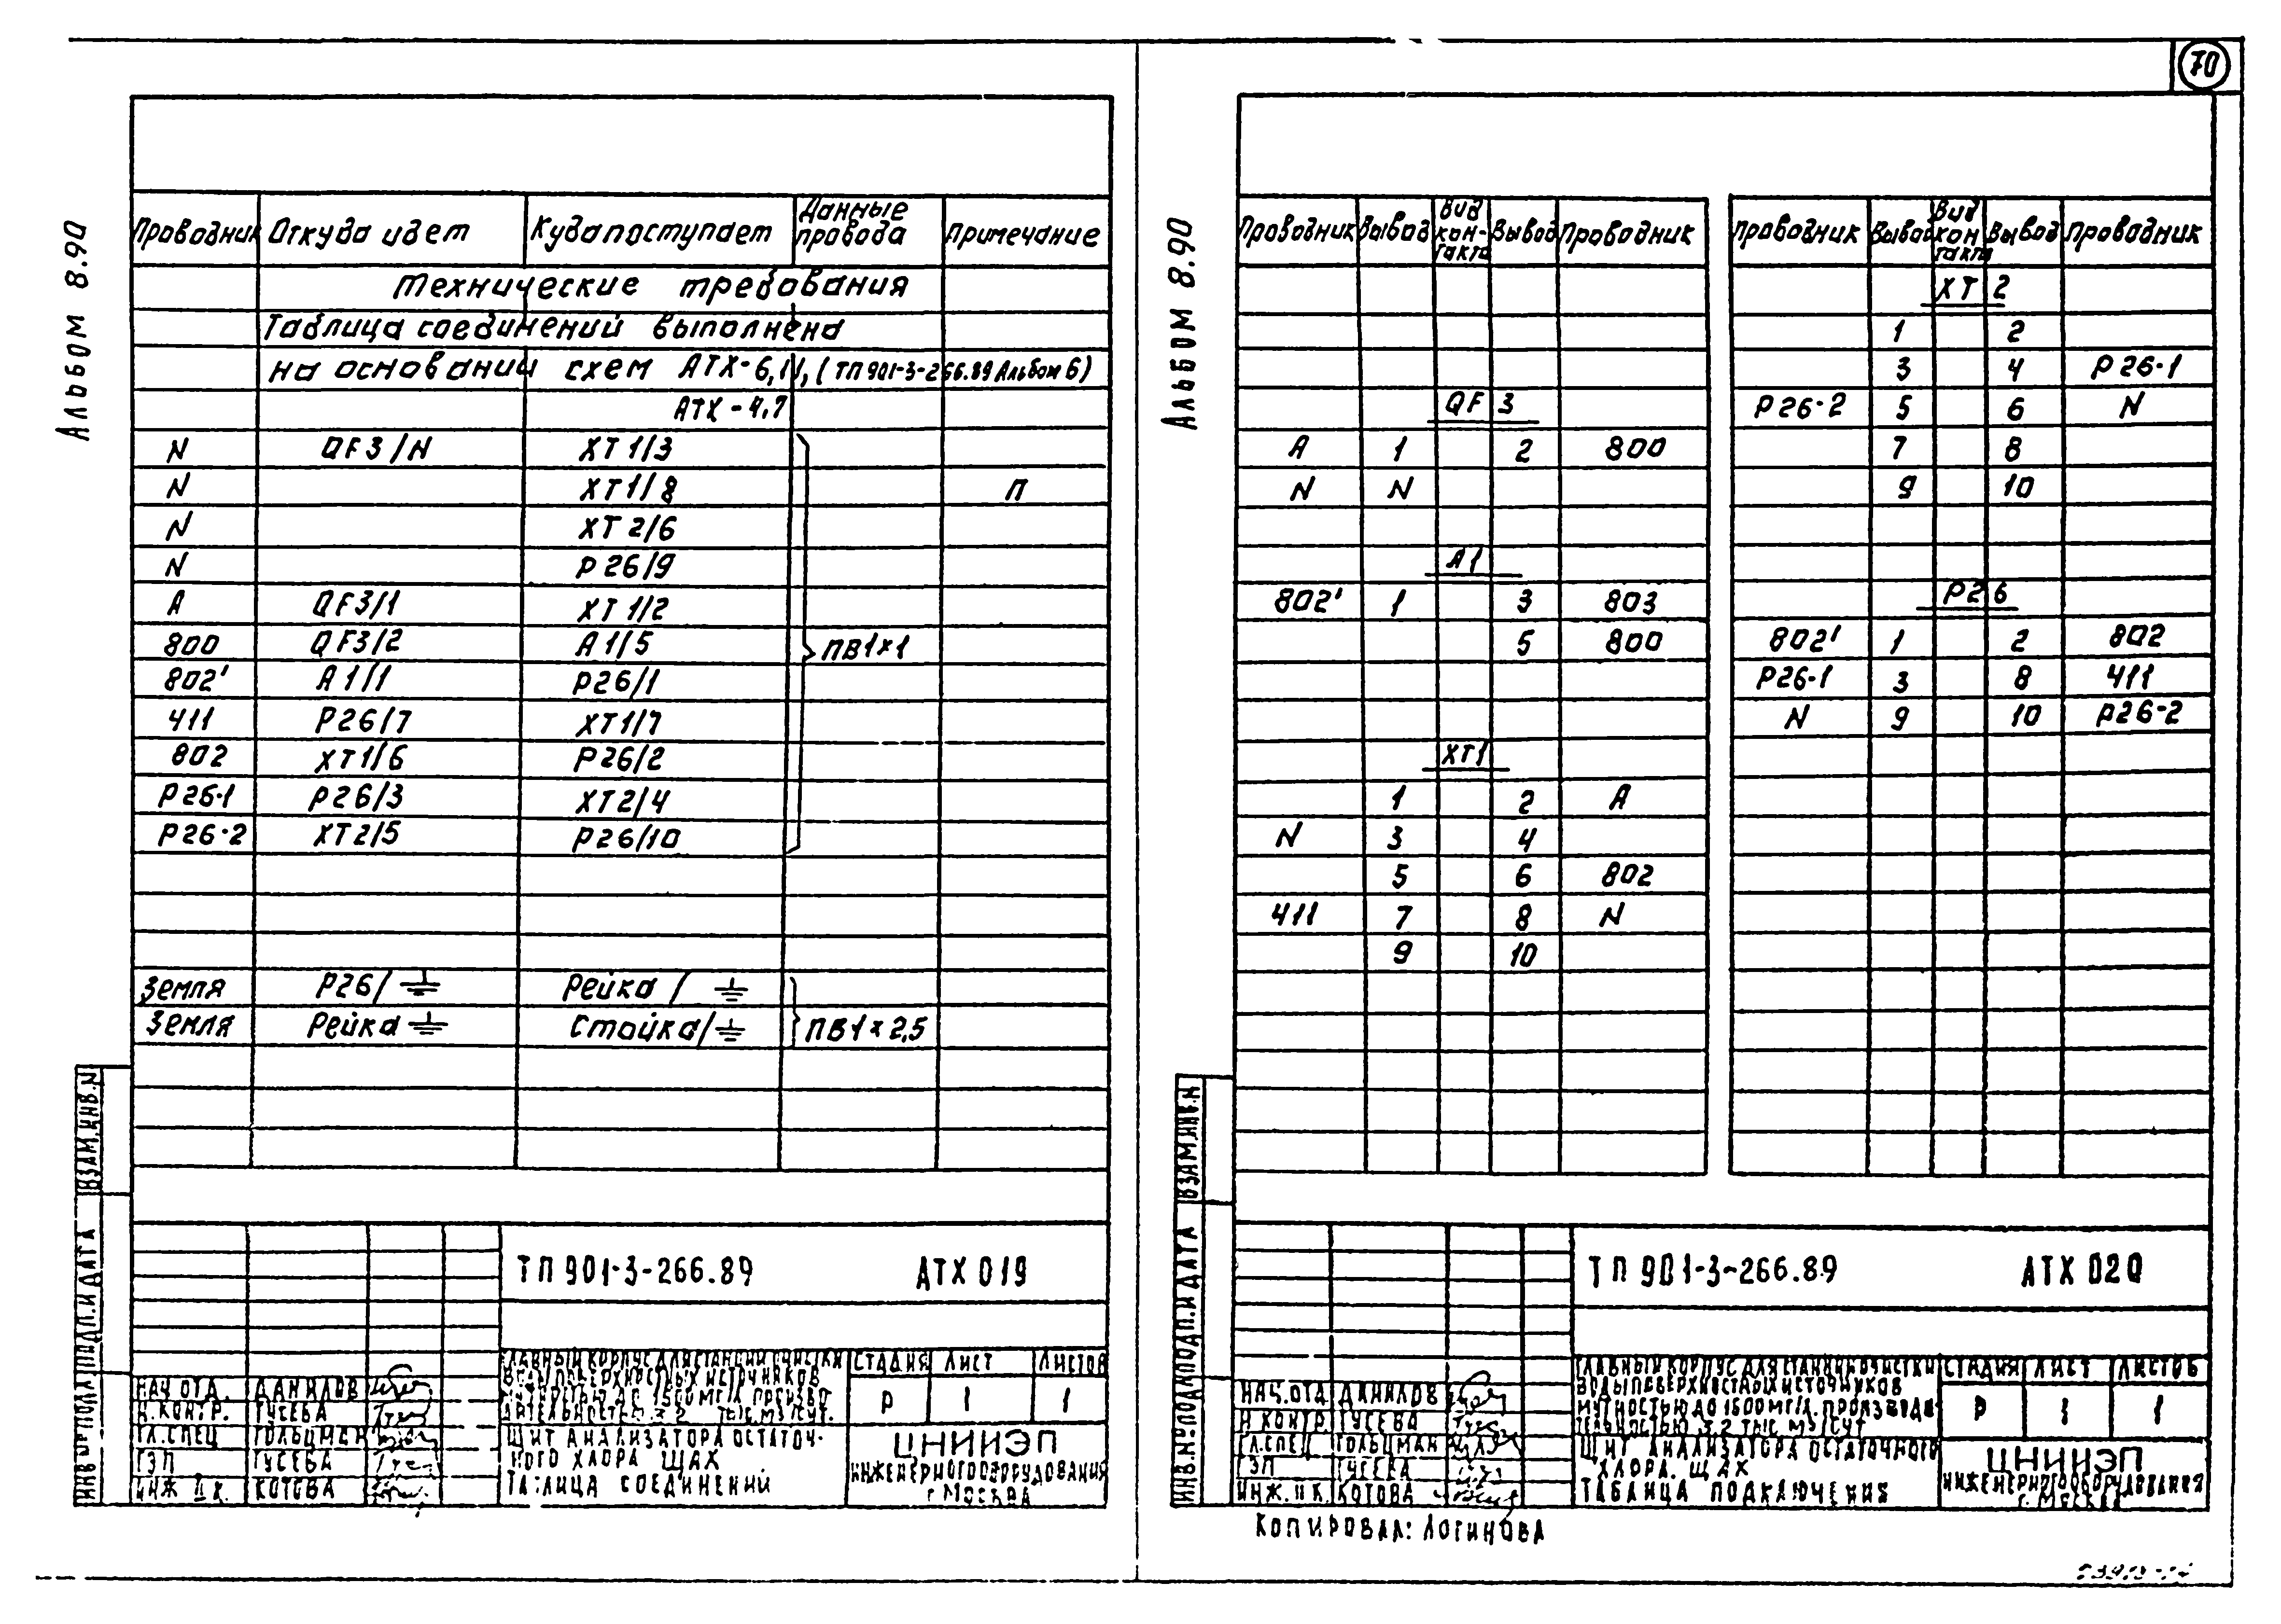 70
Альбом 8.90
Проводник Откуда идет Куда поступает Данные провода Примечание
Технические требования
Таблица соединений выполнена
на основании схем АТХ-6,11, (ТП901-3-266.89 Альбом 6)
АТХ-4,7
N QF3/N ХТ1/3
N ХТ1/8 П
N ХТ2/6
N Р26/9
А QF3/1 ХТ1/2
800 QF3/2 А1/5 ПВ1×1
802' А1/1 Р26/1
411 Р26/7 ХТ1/7
802 ХТ1/6 Р26/2
Р26-1 Р26/3 ХТ2/4
Р26-2 ХТ2/5 Р26/10
Земля Р26/⏚ Рейка/⏚
Земля Рейка ⏚ Стойка/⏚ ПВ1×2,5
ВЗАМ.ИНВ.N
ПОДП.И ДАТА
ИНВ.N°ПОДЛ
ТП 901-3-266.89 АТХ 019
ГЛАВНЫЙ КОРПУС ДЛЯ СТАНЦИИ ОЧИСТКИ
ВОДЫ ПОВЕРХНОСТНЫХ ИСТОЧНИКОВ
МУТНОСТЬЮ ДО 1500МГ/Л ПРОИЗВОДИ
ТЕЛЬНОСТЬЮ 3,2 ТЫС.М3/СУТ.
СТАДИЯ ЛИСТ ЛИСТОВ
Р 1 1
НАЧ.ОТД. ДАНИЛОВ
Н.КОНТР. ГУСЕВА
ГЛ.СПЕЦ ГОЛЬЦМАН
ГЭП ГУСЕВА
ИНЖ II К. КОТОВА
ЩИТ АНАЛИЗАТОРА ОСТАТОЧ-
НОГО ХЛОРА ЩАХ
ТАБЛИЦА СОЕДИНЕНИЙ
ЦНИИЭП
ИНЖЕНЕРНОГО ОБОРУДОВАНИЯ
г.МОСКВА
Альбом 8.90
Проводник Вывод Вид контакта Вывод Проводник
QF3
А 1 2 800
N N
А1
802' 1 3 803
5 800
ХТ1
1 2 А
N 3 4
5 6 802
411 7 8 N
9 10
Проводник Вывод Вид контакта Вывод Проводник
ХТ2
1 2
3 4 Р26-1
Р26-2 5 6 N
7 8
9 10
Р26
802' 1 2 802
Р26-1 3 8 411
N 9 10 Р26-2
ВЗАМ.ИНВ.N
ПОДП.И ДАТА
ИНВ.N°ПОДЛ
ТП 901-3-266.89 АТХ 020
ГЛАВНЫЙ КОРПУС ДЛЯ СТАНЦИИ ОЧИСТКИ
ВОДЫ ПОВЕРХНОСТНЫХ ИСТОЧНИКОВ
МУТНОСТЬЮ ДО 1500 МГ/Л. ПРОИЗВОДИ-
ТЕЛЬНОСТЬЮ 3.2 ТЫС М3/СУТ
СТАДИЯ ЛИСТ ЛИСТОВ
Р 1 1
НАЧ.ОТД. ДАНИЛОВ
Н.КОНТР. ГУСЕВА
ГЛ.СПЕЦ ГОЛЬЦМАН
ГЭП ГУСЕВА
ИНЖ. II К. КОТОВА
ЩИТ АНАЛИЗАТОРА ОСТАТОЧНОГО
ХЛОРА. ЩАХ
ТАБЛИЦА ПОДКЛЮЧЕНИЯ
ЦНИИЭП
ИНЖЕНЕРНОГО ОБОРУДОВАНИЯ
г. МОСКВА
КОПИРОВАЛ: ЛОГИНОВА